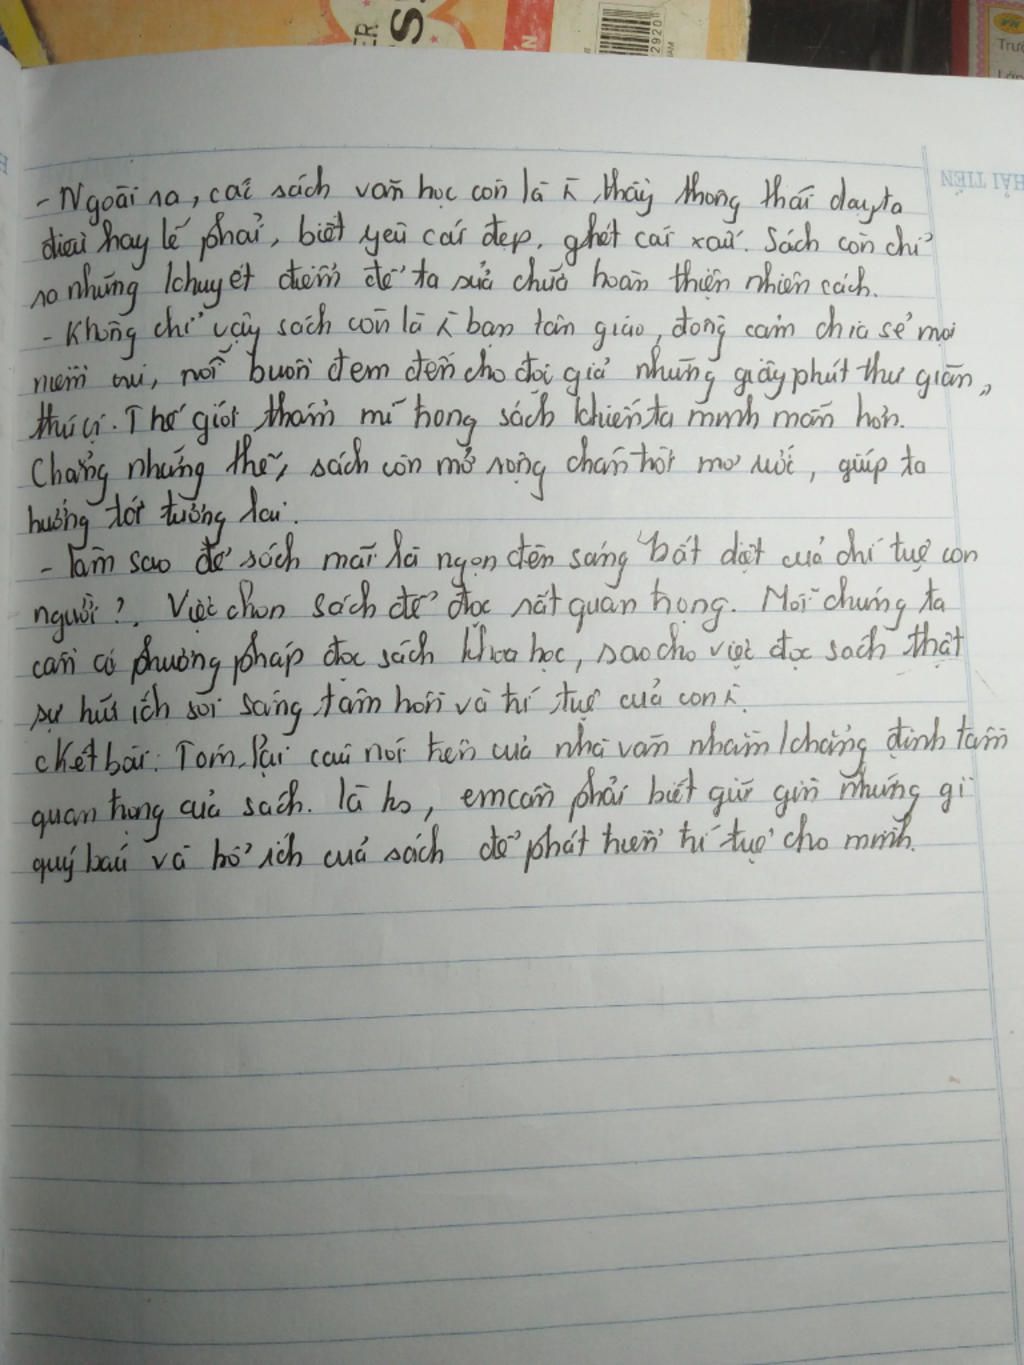 ER
S
ẤN
2920
NAM
VN
Trườ
Lớp
HẢI TIẾN
- Ngoài ra, các sách văn học còn là 人 thầy thông thái dạy ta
điều hay lẽ phải, biết yêu cái đẹp, ghét cái xấu. Sách còn chỉ
ra những khuyết điểm để ta sửa chữa hoàn thiện nhân cách.
- Không chỉ vậy sách còn là 人 bạn tân giao, đồng cảm chia sẻ mọi
niềm vui, nỗi buồn đem đến cho độc giả những giây phút thư giãn,
thú vị. Thế giới thẩm mĩ trong sách khiến ta minh mẫn hơn.
Chẳng những thế, sách còn mở rộng chân trời mơ ước, giúp ta
hướng tới tương lai.
- Làm sao để sách mãi là ngọn đèn sáng "bất diệt của chí tuệ con
người?. Việc chọn sách để đọc rất quan trọng. Mỗi chúng ta
cần có phương pháp đọc sách khoa học, sao cho việc đọc sách thật
sự hữu ích soi sáng tâm hồn và trí tuệ của con 人.
c Kết bài: Tóm lại câu nói trên của nhà văn nhằm khẳng định tầm
quan trọng của sách. là hs, em cần phải biết giữ gìn những gì
quý báu và bổ ích của sách để phát triển trí tuệ cho mình.